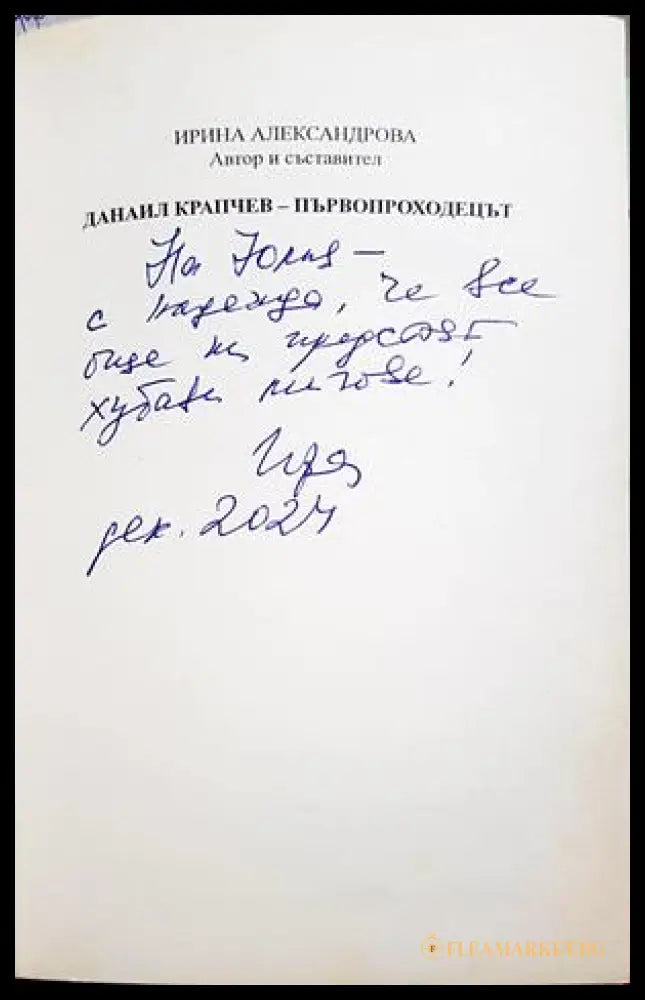 ИРИНА АЛЕКСАНДРОВА
Автор и съставител
ДАНАИЛ КРАПЧЕВ – ПЪРВОПРОХОДЕЦЪТ
На Юлия –
с надежда, че все
още ни предстоят
хубави мигове!
Ира
дек. 2024
FLEAMARKET.BG